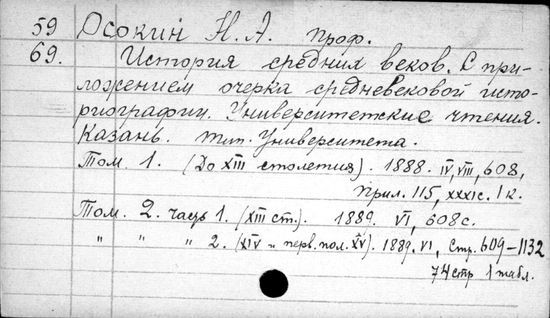 59 Осокин Н. А. проф.
69. История средних веков. С при-
ложением очерка средневековой исто-
риографии. Университетские чтения.
Казань. тип. Университета.
Том. 1. (До XIII столетия). 1888. IV, VIII, 608,
прил. 115, XXXIс. 1 к.
Том. 2. часть 1. (XIII ст.). 1889. VI, 608 с.
" " " 2. (XIV и перв. пол. XV). 1889. VI, Стр. 609-1132
74 стр 1 табл.